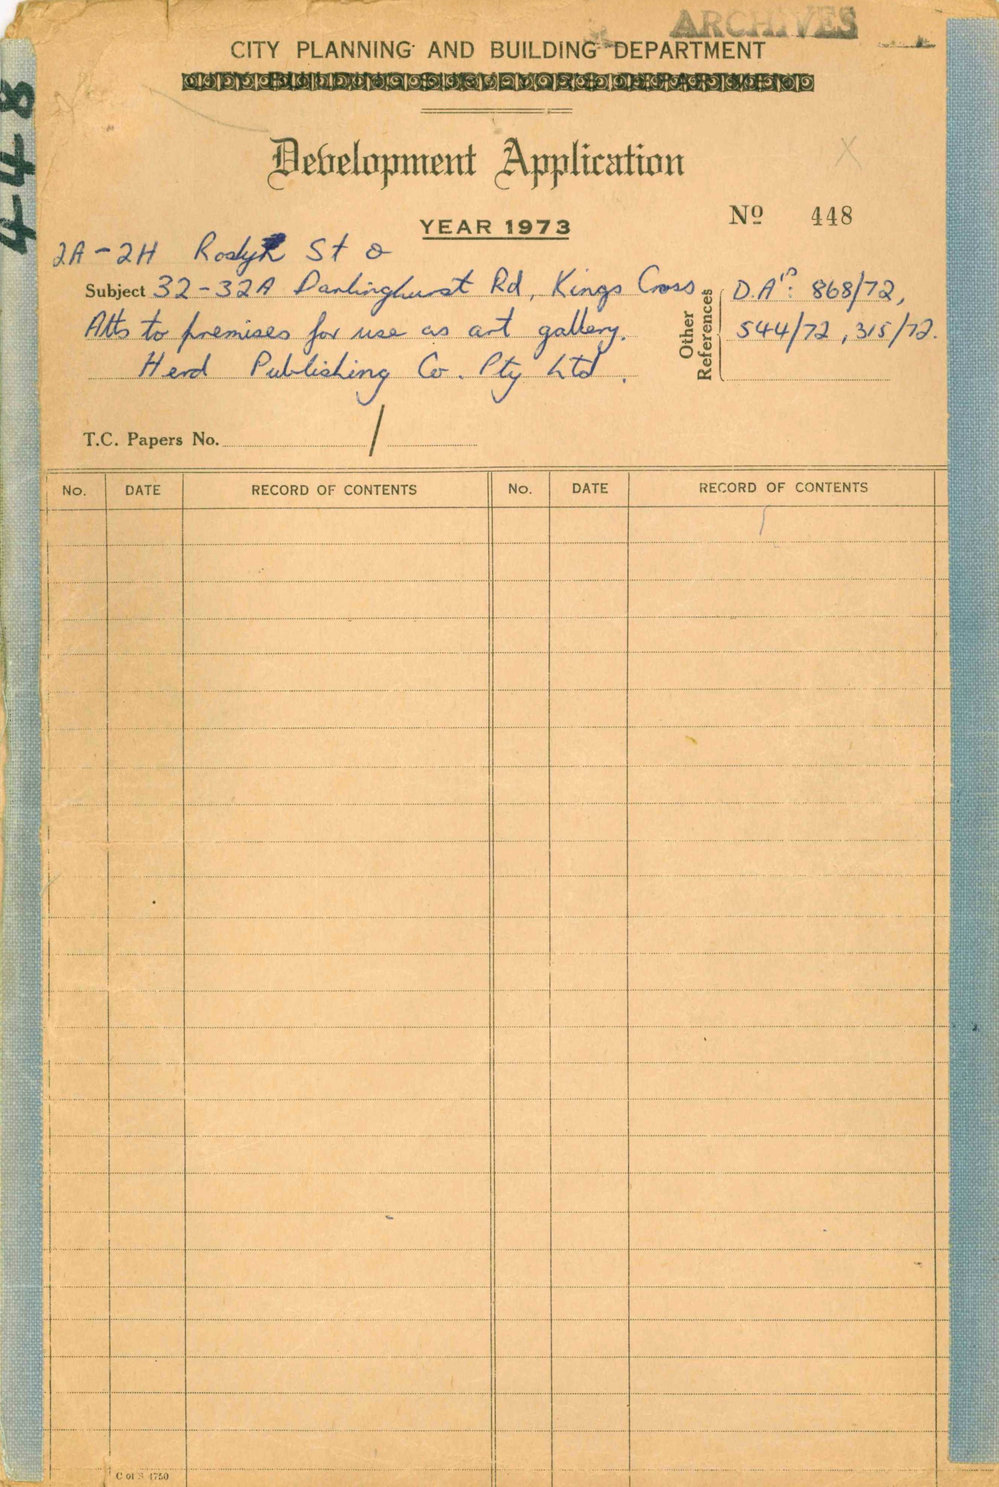 ARCHIVES
448
CITY PLANNING AND BUILDING DEPARTMENT
CITY BUILDING SURVEYOR'S DEPARTMENT
Development Application
X
YEAR 1973
Nº 448
2A-2H Roslyn St &
Subject 32-32A Darlinghurst Rd, Kings Cross.
Alts to premises for use as art gallery.
Herd Publishing Co. Pty Ltd.
Other References
D.A's: 868/72,
544/72, 315/72.
T.C. Papers No. /
No. DATE RECORD OF CONTENTS No. DATE RECORD OF CONTENTS
C of S 4750